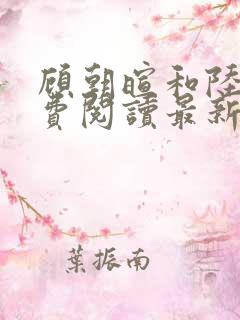 顧朝暄和陸
費閱讀最新
葉振南